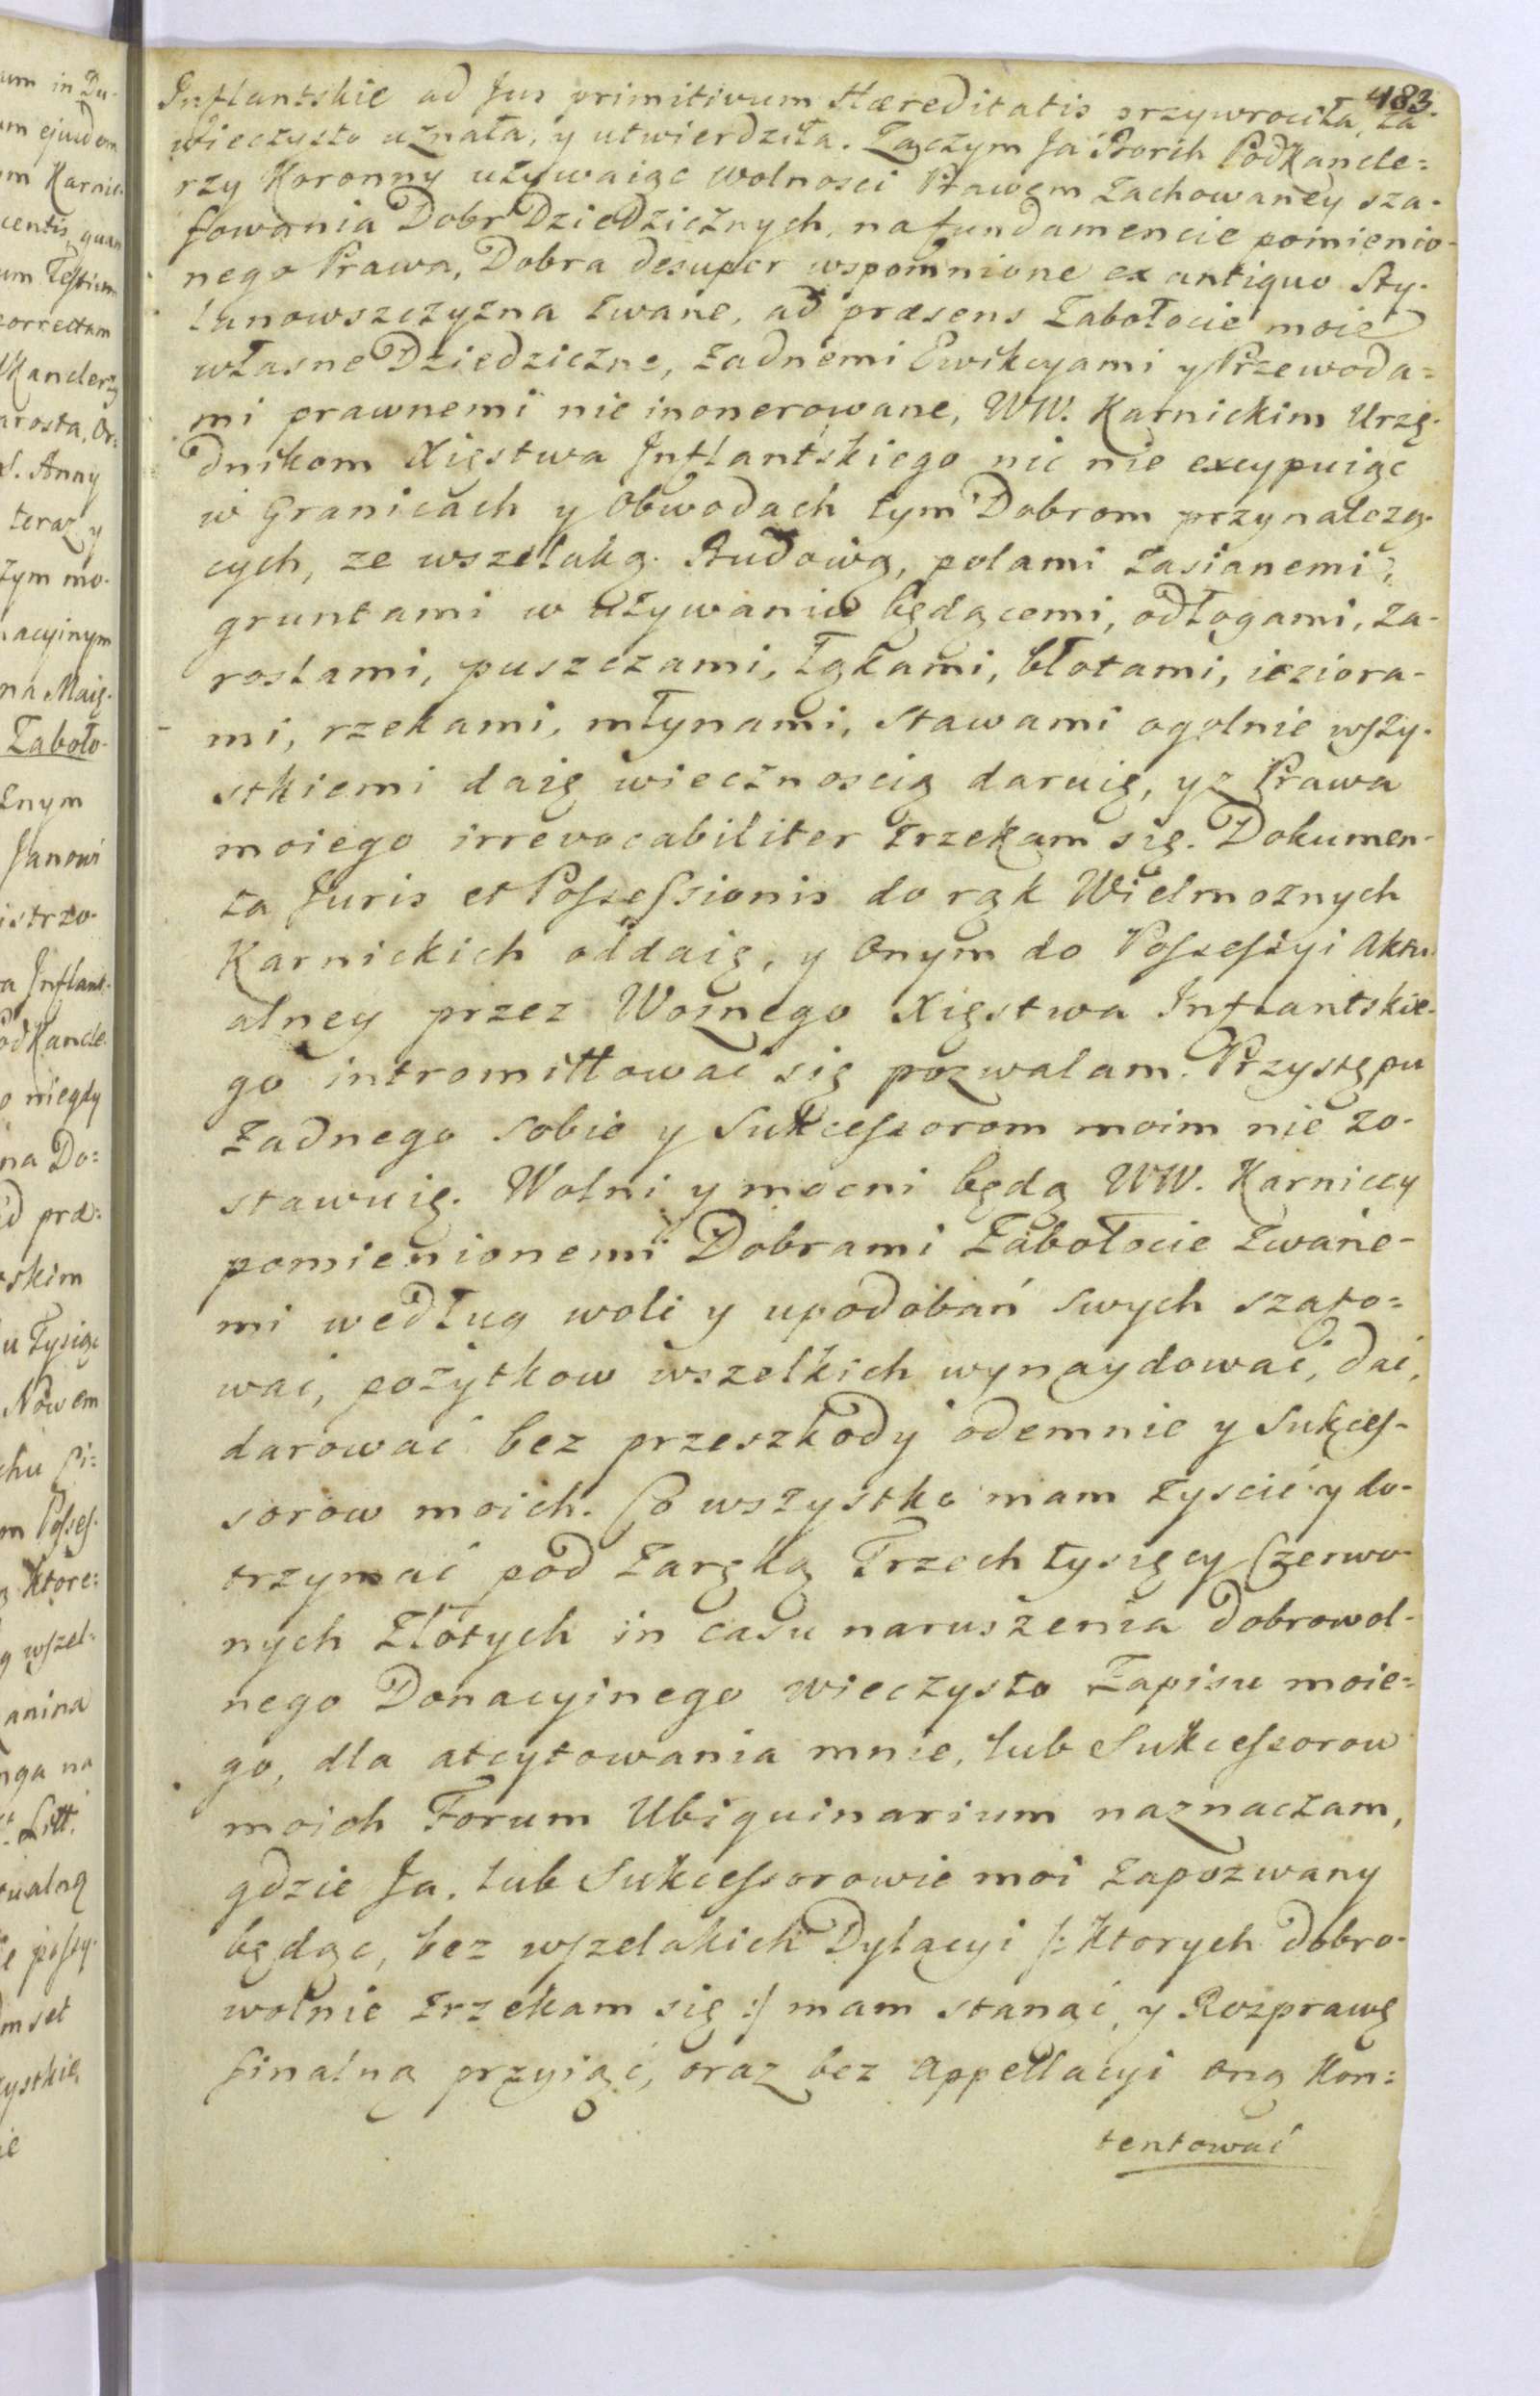 483.
Inflantskie ad Jus primitivum Hæreditatis przywrociła, za
wieczysto uznała, y utwierdziła. Zaczym Ja Borch PodKancle=
rzy Koronny używaiąc wolnosci Prawem zachowaney sza-
fowania Dobr Dziedzicznych, na fundamencie pomienio-
nego Prawa, Dobra desuper wspomnione ex antiquo Sty-
lanowszczyzna zwane, ad præsens Zabołocie moie
własne Dziedziczne, żadnemi Ewikcyami y Przewoda=
mi prawnemi nie inonerowane, WW. Karnickim Urzę-
dnikom Xięstwa Inflantskiego nic nie excypuiąc
w Granicach y Obwodach tym Dobrom przynależą-
cych, ze wszelaką Budową, polami zasianemi,
gruntami w używaniu będącemi, odłogami, za-
roslami, puszczami, łąkami, błotami, ieziora-
mi, rzekami, młynami, stawami ogolnie wszy-
stkiemi daię wiecznoscią daruię, y z Prawa
moiego irrevocabiliter zrzekam się. Dokumen-
ta Juris et Possessionis do rąk Wielmoznych
Karnickich oddaię, y Onym do Possessyi Aktu-
alney przez Woznego Xięstwa Inflantskie-
go intromittować się pozwalam. Przystępu
żadnego sobie y Sukcessorom moim nie zo-
stawuię. Wolni y mocni będą WW. Karniccy
pomienionemi Dobrami Zabołocie zwane-
mi według woli y upodobań swych szafo=
wać, pożytkow wszelkich wynaydować, dać,
darować bez przeszkody odemnie y Sukces-
sorow moich. Co wszystko mam zyscić y do-
trzymać pod Zaręką Trzech tysięcy Czerwo-
nych Złotych in casu naruszenia dobrowol-
nego Donacyinego wieczysto Zapisu moie=
go, dla atcytowania mnie, lub Sukcessorow
moich Forum Ubiquinarium naznaczam,
gdzie Ja, lub Sukcessorowie moi zapozwany
będąc, bez wszelakich Dylacyi /: ktorych dobro-
wolnie zrzekam się :/ mam stanąć, y Rozprawę
finalną przyiąć, oraz bez Appellacyi oną kon=
tentować